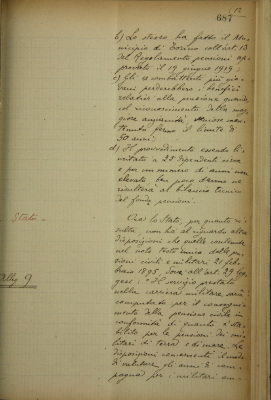 687
b) Lo stesso ha fatto il Mu-
nicipio di Torino coll'art. 13
del Regolamento pensioni ap-
provato il 19 giugno 1919;
c) Gli ex combattenti più gio-
vani perderebbero i benefici
relativi alla pensione
col riconoscimento della mag-
giore anzianità
fermo il limite di
anni;
d) Il provvedimento essendo li-
mitato a 22 dipendenti circa
e per un numero di anni non
elevato ben poco danno ne
risulterà al bilancio tecnico
del fondo pensioni.
Ora lo Stato, per quanto ri-
sulta, non ha al riguardo altre
disposizioni che quelle contenute
nel noto testo unico delle pen-
sioni civili e militari 21 feb-
braio 1895, dove all'art. 29 leg-
gesi: "Il servizio prestato
nella carriera militare sarà
computato per il consegui-
mento della pensione civile in
conformità di quanto è sta-
bilito per le pensioni dei mi-
litari di terra e di mare. Le
disposizioni concernenti il modo
di valutare gli anni di cam-
pagna per i militari an-
Stato
All. 9